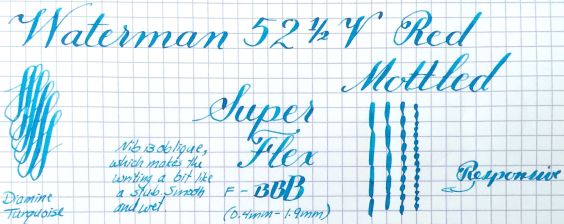 Waterman 52½ V Red
Mottled
Super
Flex
Nib is oblique,
which makes the
writing a bit like
a stub. Smooth
and wet.
F - BBB
(0.4mm - 1.9mm)
Responsive
Diamine
Turquoise